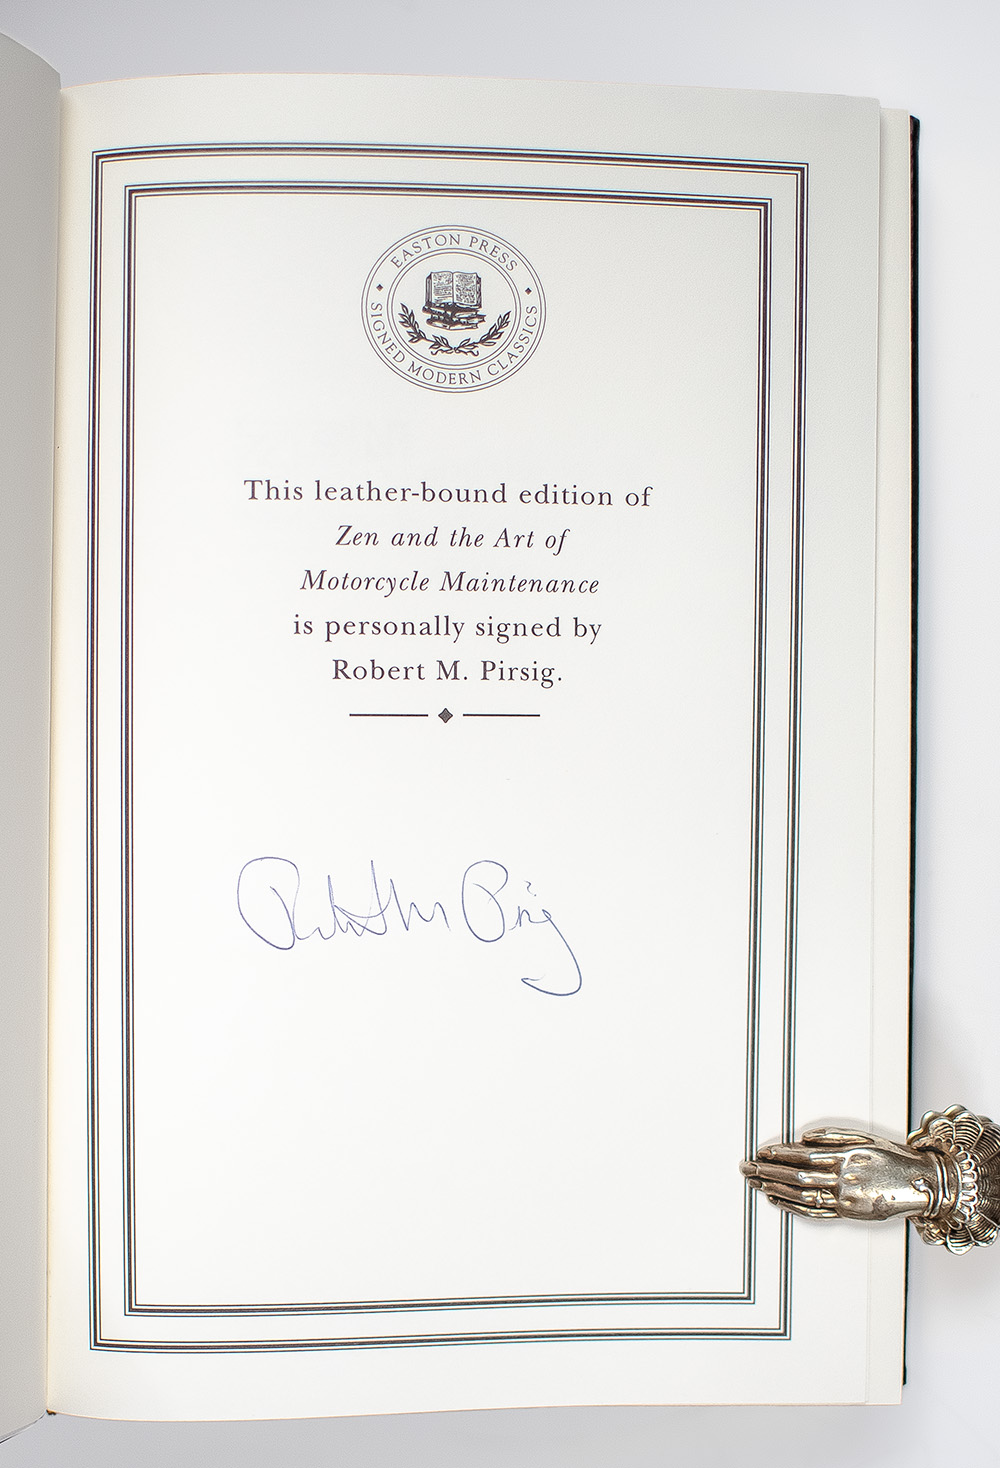 EASTON PRESS
SIGNED MODERN CLASSICS
This leather-bound edition of
Zen and the Art of
Motorcycle Maintenance
is personally signed by
Robert M. Pirsig.